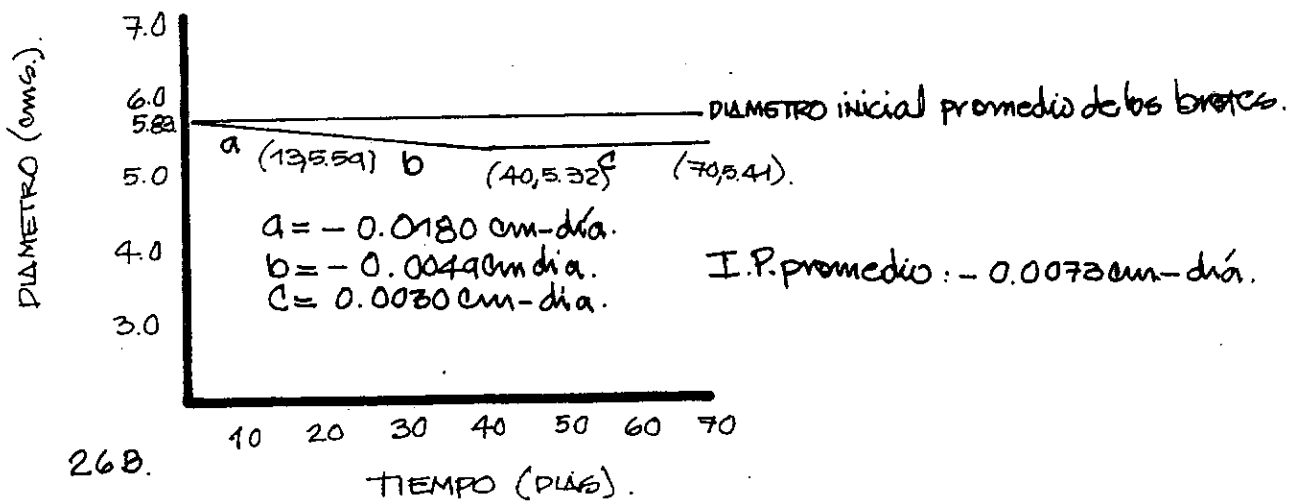 DIAMETRO (cms.).
7.0
6.0
5.82
5.0
4.0
3.0
DIAMETRO inicial promedio de los brotes.
a (13,5.59) b (40,5.32) c (70,5.41).
a = - 0.0180 cm-día.
b = - 0.0049 cm dia.
c = 0.0030 cm-dia.
I.P. promedio: - 0.0073 cm-día.
10 20 30 40 50 60 70
268.
TIEMPO (DIAS).